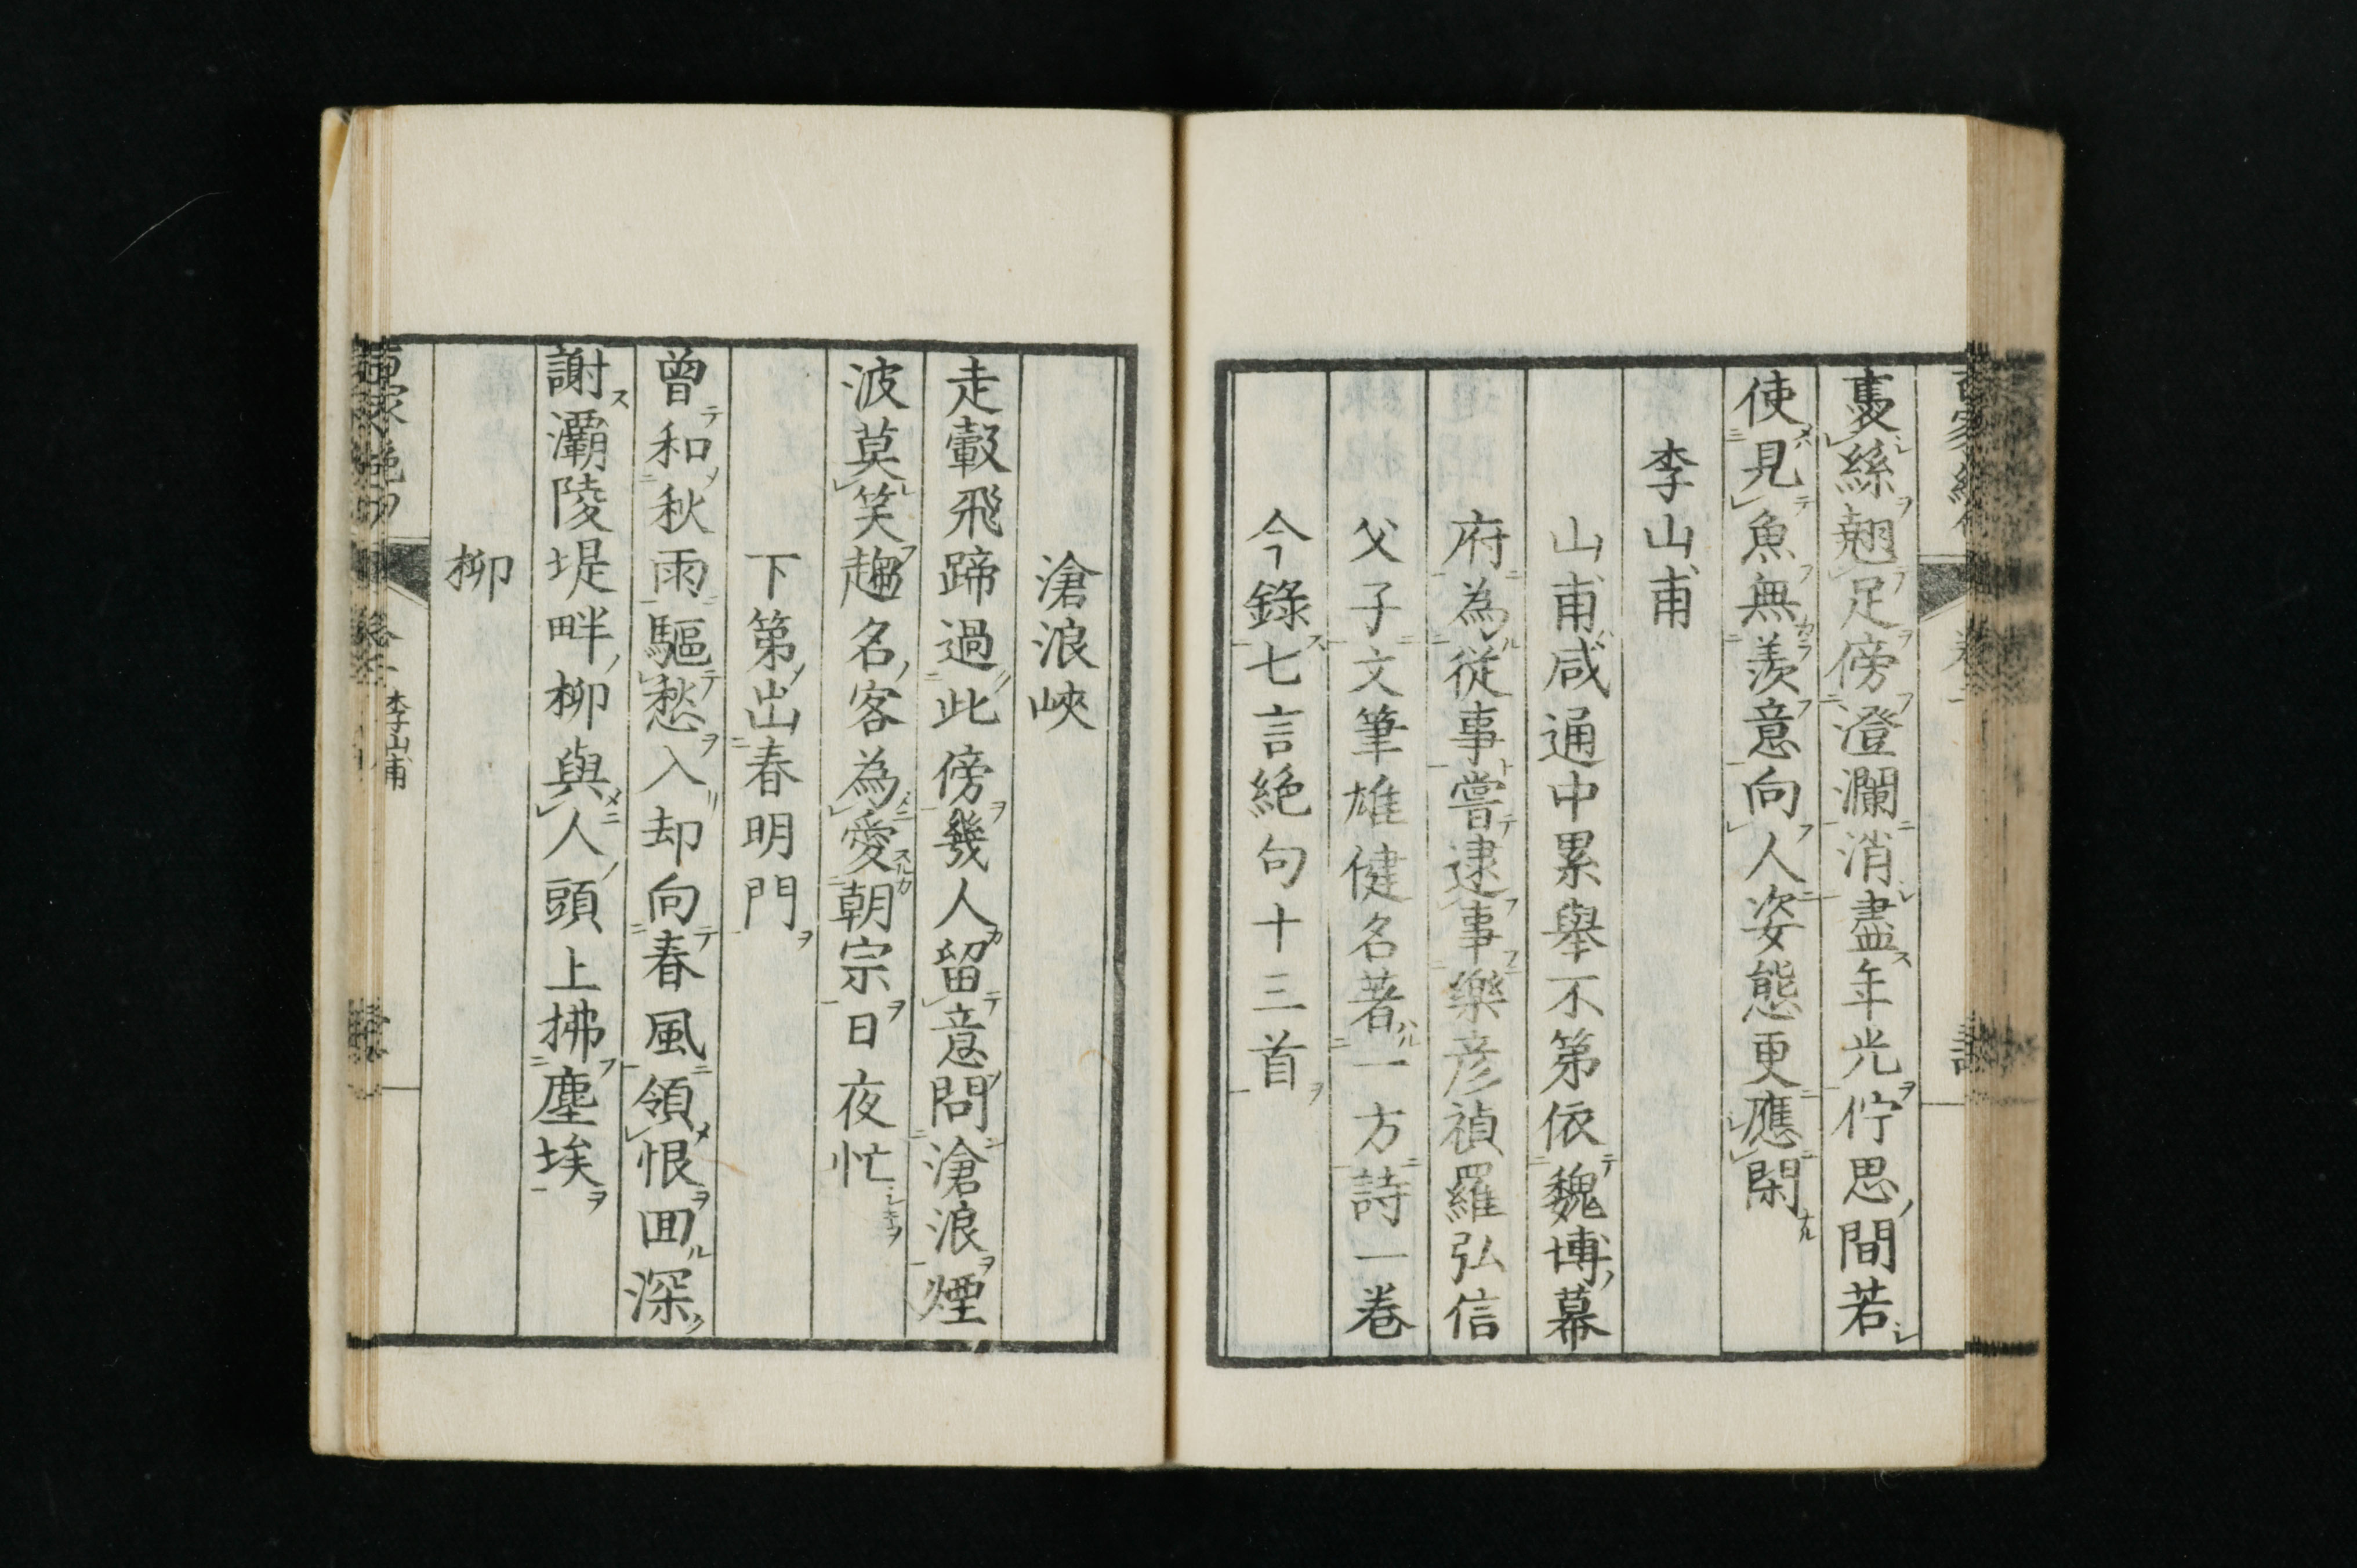 裊絲翹足傍澄瀾消盡年光佇思間若
使見魚無羨意向人姿態更應閑
李山甫
山甫咸通中累舉不第依魏博幕
府為從事嘗逮事樂彦禎羅弘信
父子文筆雄健名著一方詩一卷
今錄七言絶句十三首
滄浪峽
走轂飛蹄過此傍幾人留意問滄浪煙
波莫笑趨名客為愛朝宗日夜忙
下第出春明門
曾和秋雨驅愁入却向春風領恨囬深
謝灞陵堤畔柳與人頭上拂塵埃
柳
李山甫